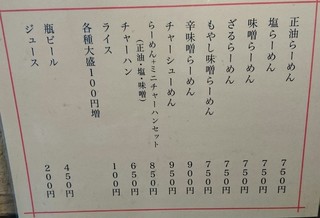 正油らーめん 750円
塩らーめん 750円
味噌らーめん 750円
ざるらーめん 750円
もやし味噌らーめん 750円
辛味噌らーめん 900円
チャーシューめん 950円
らーめん+ミニチャーハンセット 850円
(正油・塩・味噌)
チャーハン 650円
ライス 100円
各種大盛100円増
瓶ビール 450円
ジュース 200円